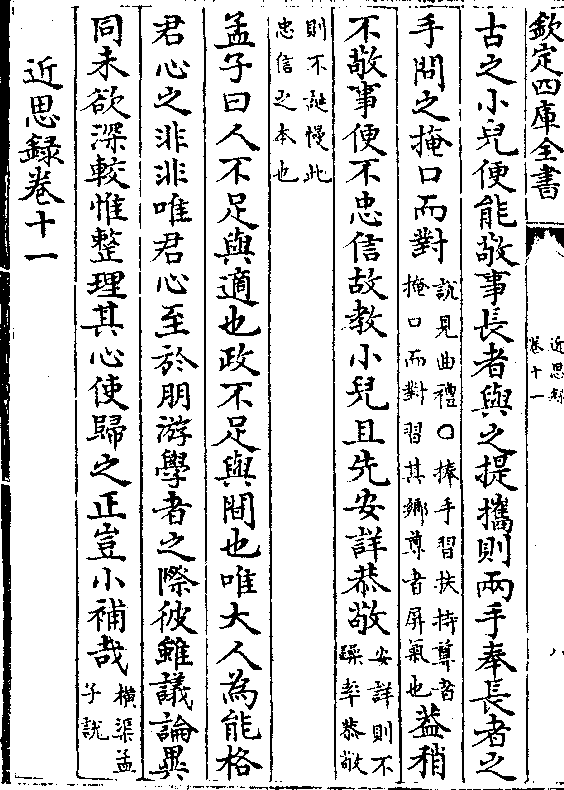 欽定四庫全書
近思録
卷十一
八
古之小兒便能敬事長者與之提攜則兩手奉長者之
手問之掩口而對
說見曲禮○捧手習扶持尊者
掩口而對習其鄉尊者屏氣也
蓋稍
不敬事便不忠信故教小兒且先安詳恭敬
安詳則不
躁率恭敬
則不誕慢此
忠信之本也
孟子曰人不足與適也政不足與間也唯大人為能格
君心之非非唯君心至於朋游學者之際彼雖議論異
同未欲深較惟整理其心使歸之正豈小補哉
橫渠孟
子說
近思録卷十一